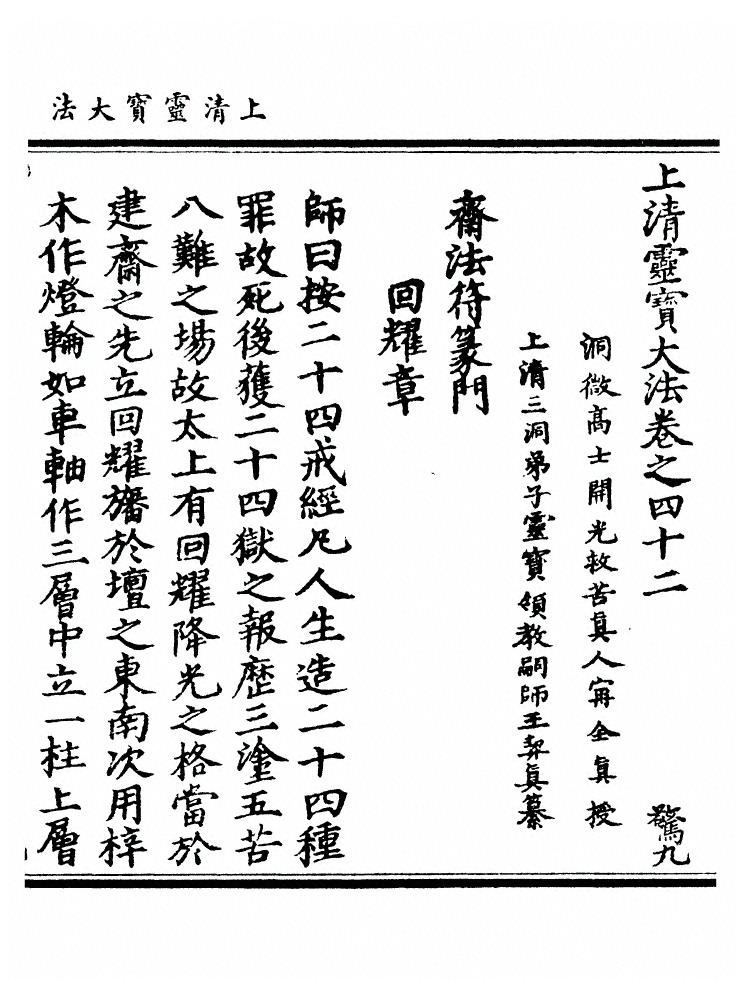 上清靈寶大法
上清靈寶大法卷之四十二 驚九
洞微高士開光救苦真人甯全真授
上清三洞弟子靈寶領教嗣師王契真纂
齋法符篆門
回耀章
師曰按二十四戒經凡人生造二十四種
罪故死後獲二十四獄之報歷三塗五苦
八難之場故太上有回耀降光之格當於
建齋之先立回耀旛於壇之東南次用梓
木作燈輪如車軸作三層中立一柱上層